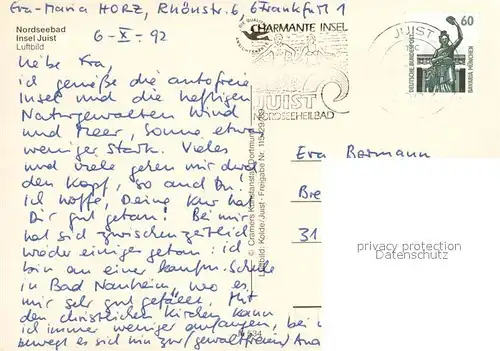 Eva-Maria HORZ, Rhönstr. 6, 6 Frankfurt 1
Nordseebad
Insel Juist
Luftbild
6-X-92
Liebe Eva,
ich genieße die autofreie
Insel und die heftigen
Naturgewalten Wind
und Meer, Sonne etwas
weniger stark. Vieles
und viele gehen mir durch
den Kopf, so auch Du.
Ich hoffe, Deine Kur hat
Dir gut getan! Bei mir
hat sich zwischenzeitlich
wieder einiges getan: ich
bin an einer kaufm. Schule
in Bad Nauheim, wo es
mir sehr gut gefällt. Mit
den christlichen Kirchen kann
ich immer weniger anfangen, bei
bewegt es sich nur (gewaltfreien)
© Cramers Kunstanstalt, Dortmund
Luftbild: Kolde Juist - Freigabe Nr.
CHARMANTE INSEL
JUIST
NORDSEEHEILBAD
JUIST
60
DEUTSCHE BUNDESPOST
BAVARIA MÜNCHEN
Eva Bormann
Bre
31
privacy protection
Datenschutz